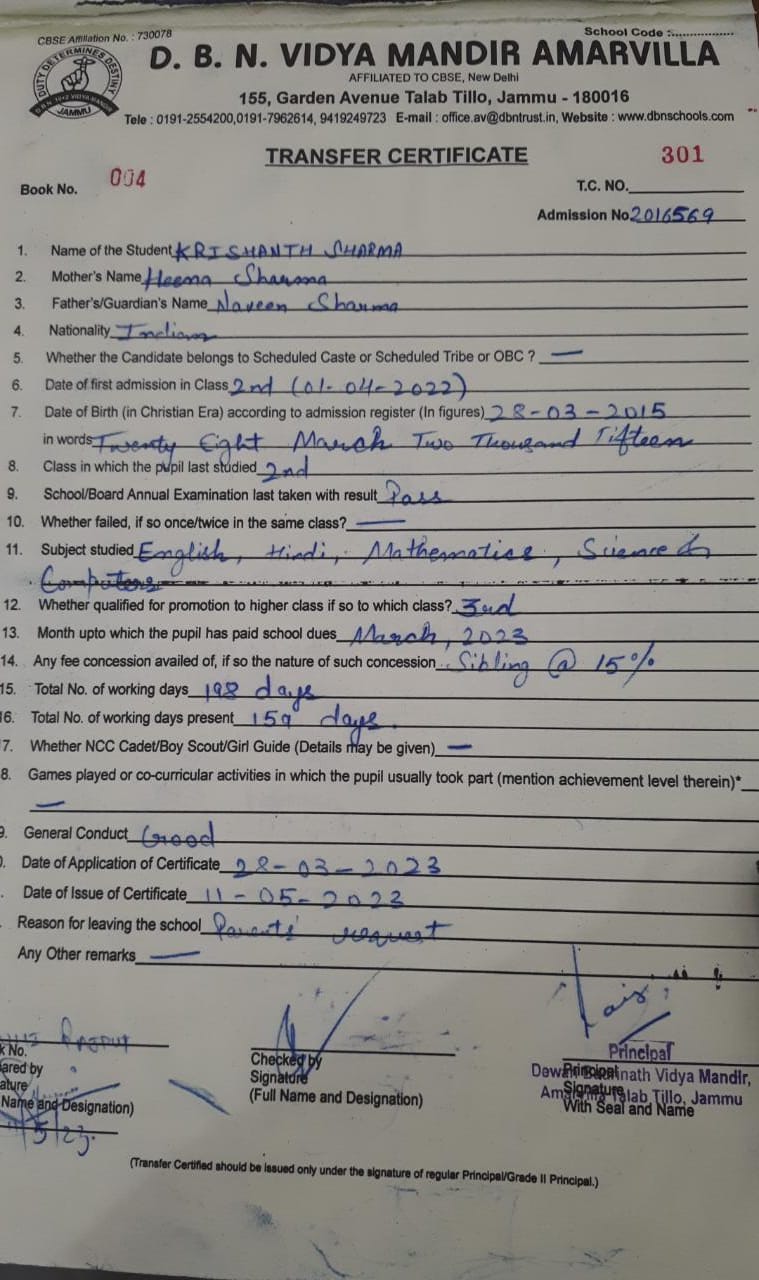 CBSE Affiliation No. : 730078
School Code :..................
DUTY DETERMINES DESTINY
JAMMU
D. B. N. VIDYA MANDIR AMARVILLA
AFFILIATED TO CBSE, New Delhi
155, Garden Avenue Talab Tillo, Jammu - 180016
Tele : 0191-2554200,0191-7962614, 9419249723 E-mail : office.av@dbntrust.in, Website : www.dbnschools.com
TRANSFER CERTIFICATE
301
Book No. 004
T.C. NO.
Admission No 2016569
1. Name of the Student KRISHANTH SHARMA
2. Mother's Name Heena Sharma
3. Father's/Guardian's Name Naveen Sharma
4. Nationality Indian
5. Whether the Candidate belongs to Scheduled Caste or Scheduled Tribe or OBC ? —
6. Date of first admission in Class 2nd (01-04-2022)
7. Date of Birth (in Christian Era) according to admission register (In figures) 28-03-2015
in words Twenty Eight March Two Thousand Fifteen
8. Class in which the pupil last studied 2nd
9. School/Board Annual Examination last taken with result Pass
10. Whether failed, if so once/twice in the same class? —
11. Subject studied English, Hindi, Mathematics, Science &
Computers
12. Whether qualified for promotion to higher class if so to which class? 3rd
13. Month upto which the pupil has paid school dues March, 2023
14. Any fee concession availed of, if so the nature of such concession Sibling @ 15%
15. Total No. of working days 198 days
16. Total No. of working days present 159 days.
7. Whether NCC Cadet/Boy Scout/Girl Guide (Details may be given) —
8. Games played or co-curricular activities in which the pupil usually took part (mention achievement level therein)*
—
9. General Conduct Good
). Date of Application of Certificate 28-03-2023
. Date of Issue of Certificate 11-05-2023
Reason for leaving the school Parents' request
Any Other remarks —
k No.
ared by
ature
Name and Designation)
/5/23.
Checked by
Signature
(Full Name and Designation)
Principal
Principal
Vidya Mandir,
Signature
Talab Tillo, Jammu
With Seal and Name
(Transfer Certified should be issued only under the signature of regular Principal/Grade II Principal.)